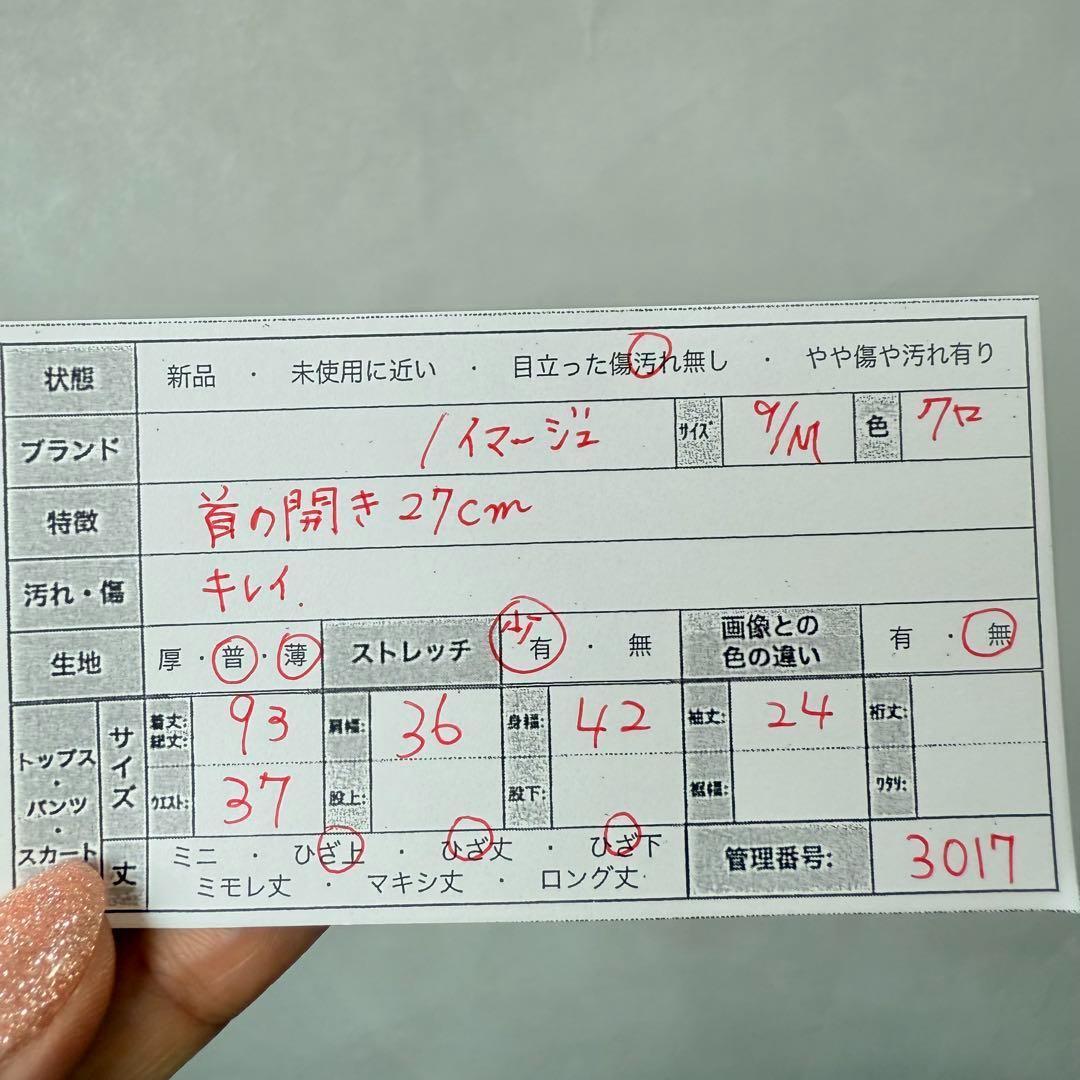 状態 新品 ・ 未使用に近い ・ 目立った傷汚れ無し ・ やや傷や汚れ有り
ブランド /イマージュ サイズ 9/M 色 クロ
特徴 首の開き27cm
汚れ・傷 キレイ.
生地 厚・普・薄 ストレッチ 少 有 ・ 無 画像との色の違い 有 ・ 無
トップス・パンツ・スカート サイズ 着丈:総丈: 93 肩幅: 36 身幅: 42 袖丈: 24 裄丈:
ウエスト: 37 股上: 股下: 裾幅: ワタリ:
丈 ミニ ・ ひざ上 ・ ひざ丈 ・ ひざ下
ミモレ丈 ・ マキシ丈 ・ ロング丈
管理番号: 3017